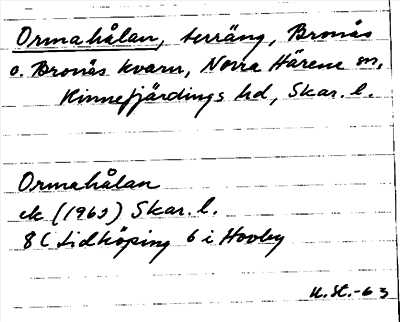 Ormahålan, terräng, Bronäs
o. Bronäs kvarn, Norra Härene sn,
Kinnefjärdings hd, Skar. l.
Ormahålan
ek (1962) Skar. l.
8C Lidköping 6 i Hovby
U. St. -63